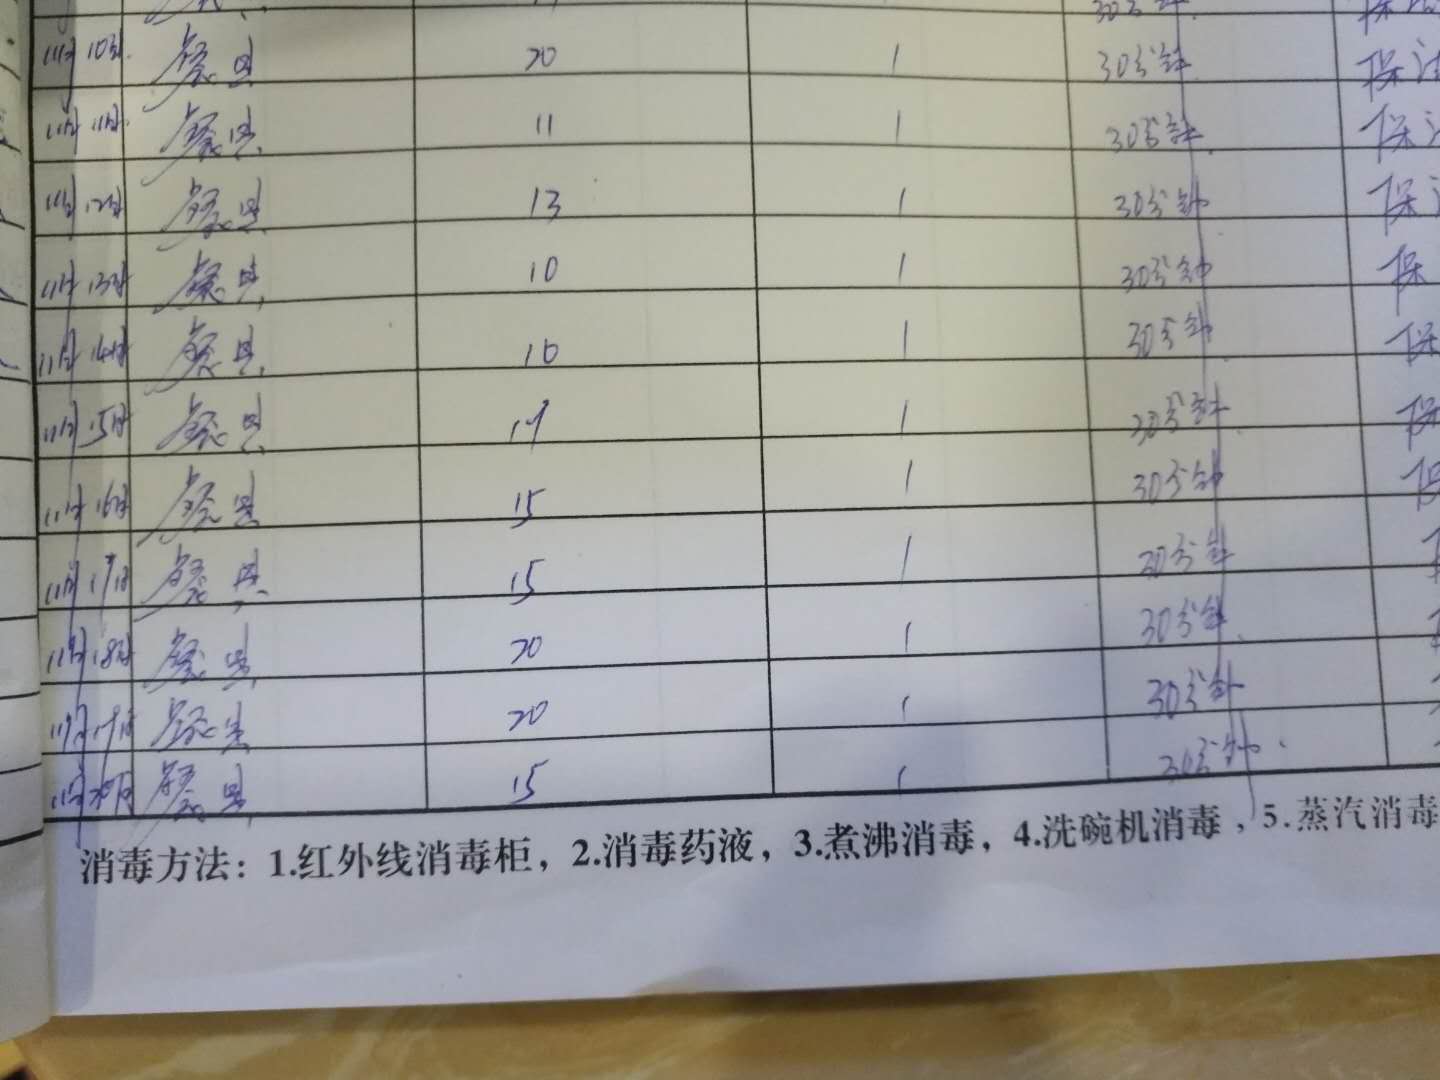 30分钟
11月10日 餐具 20 1 30分钟 保洁
11月11日 餐具 11 1 30分钟 保
11月12日 餐具 13 1 30分钟 保
11月13日 餐具 10 1 30分钟 保
11月14日 餐具 16 1 30分钟 保
11月15日 餐具 1 30分钟 保
11月16日 餐具 15 1 30分钟
11月17日 餐具 15 1 30分钟
11月18日 餐具 20 1 30分钟
11月19日 餐具 20 1 30分钟
11月20日 餐具 15 1 30分钟
消毒方法：1.红外线消毒柜，2.消毒药液，3.煮沸消毒，4.洗碗机消毒，5.蒸汽消毒